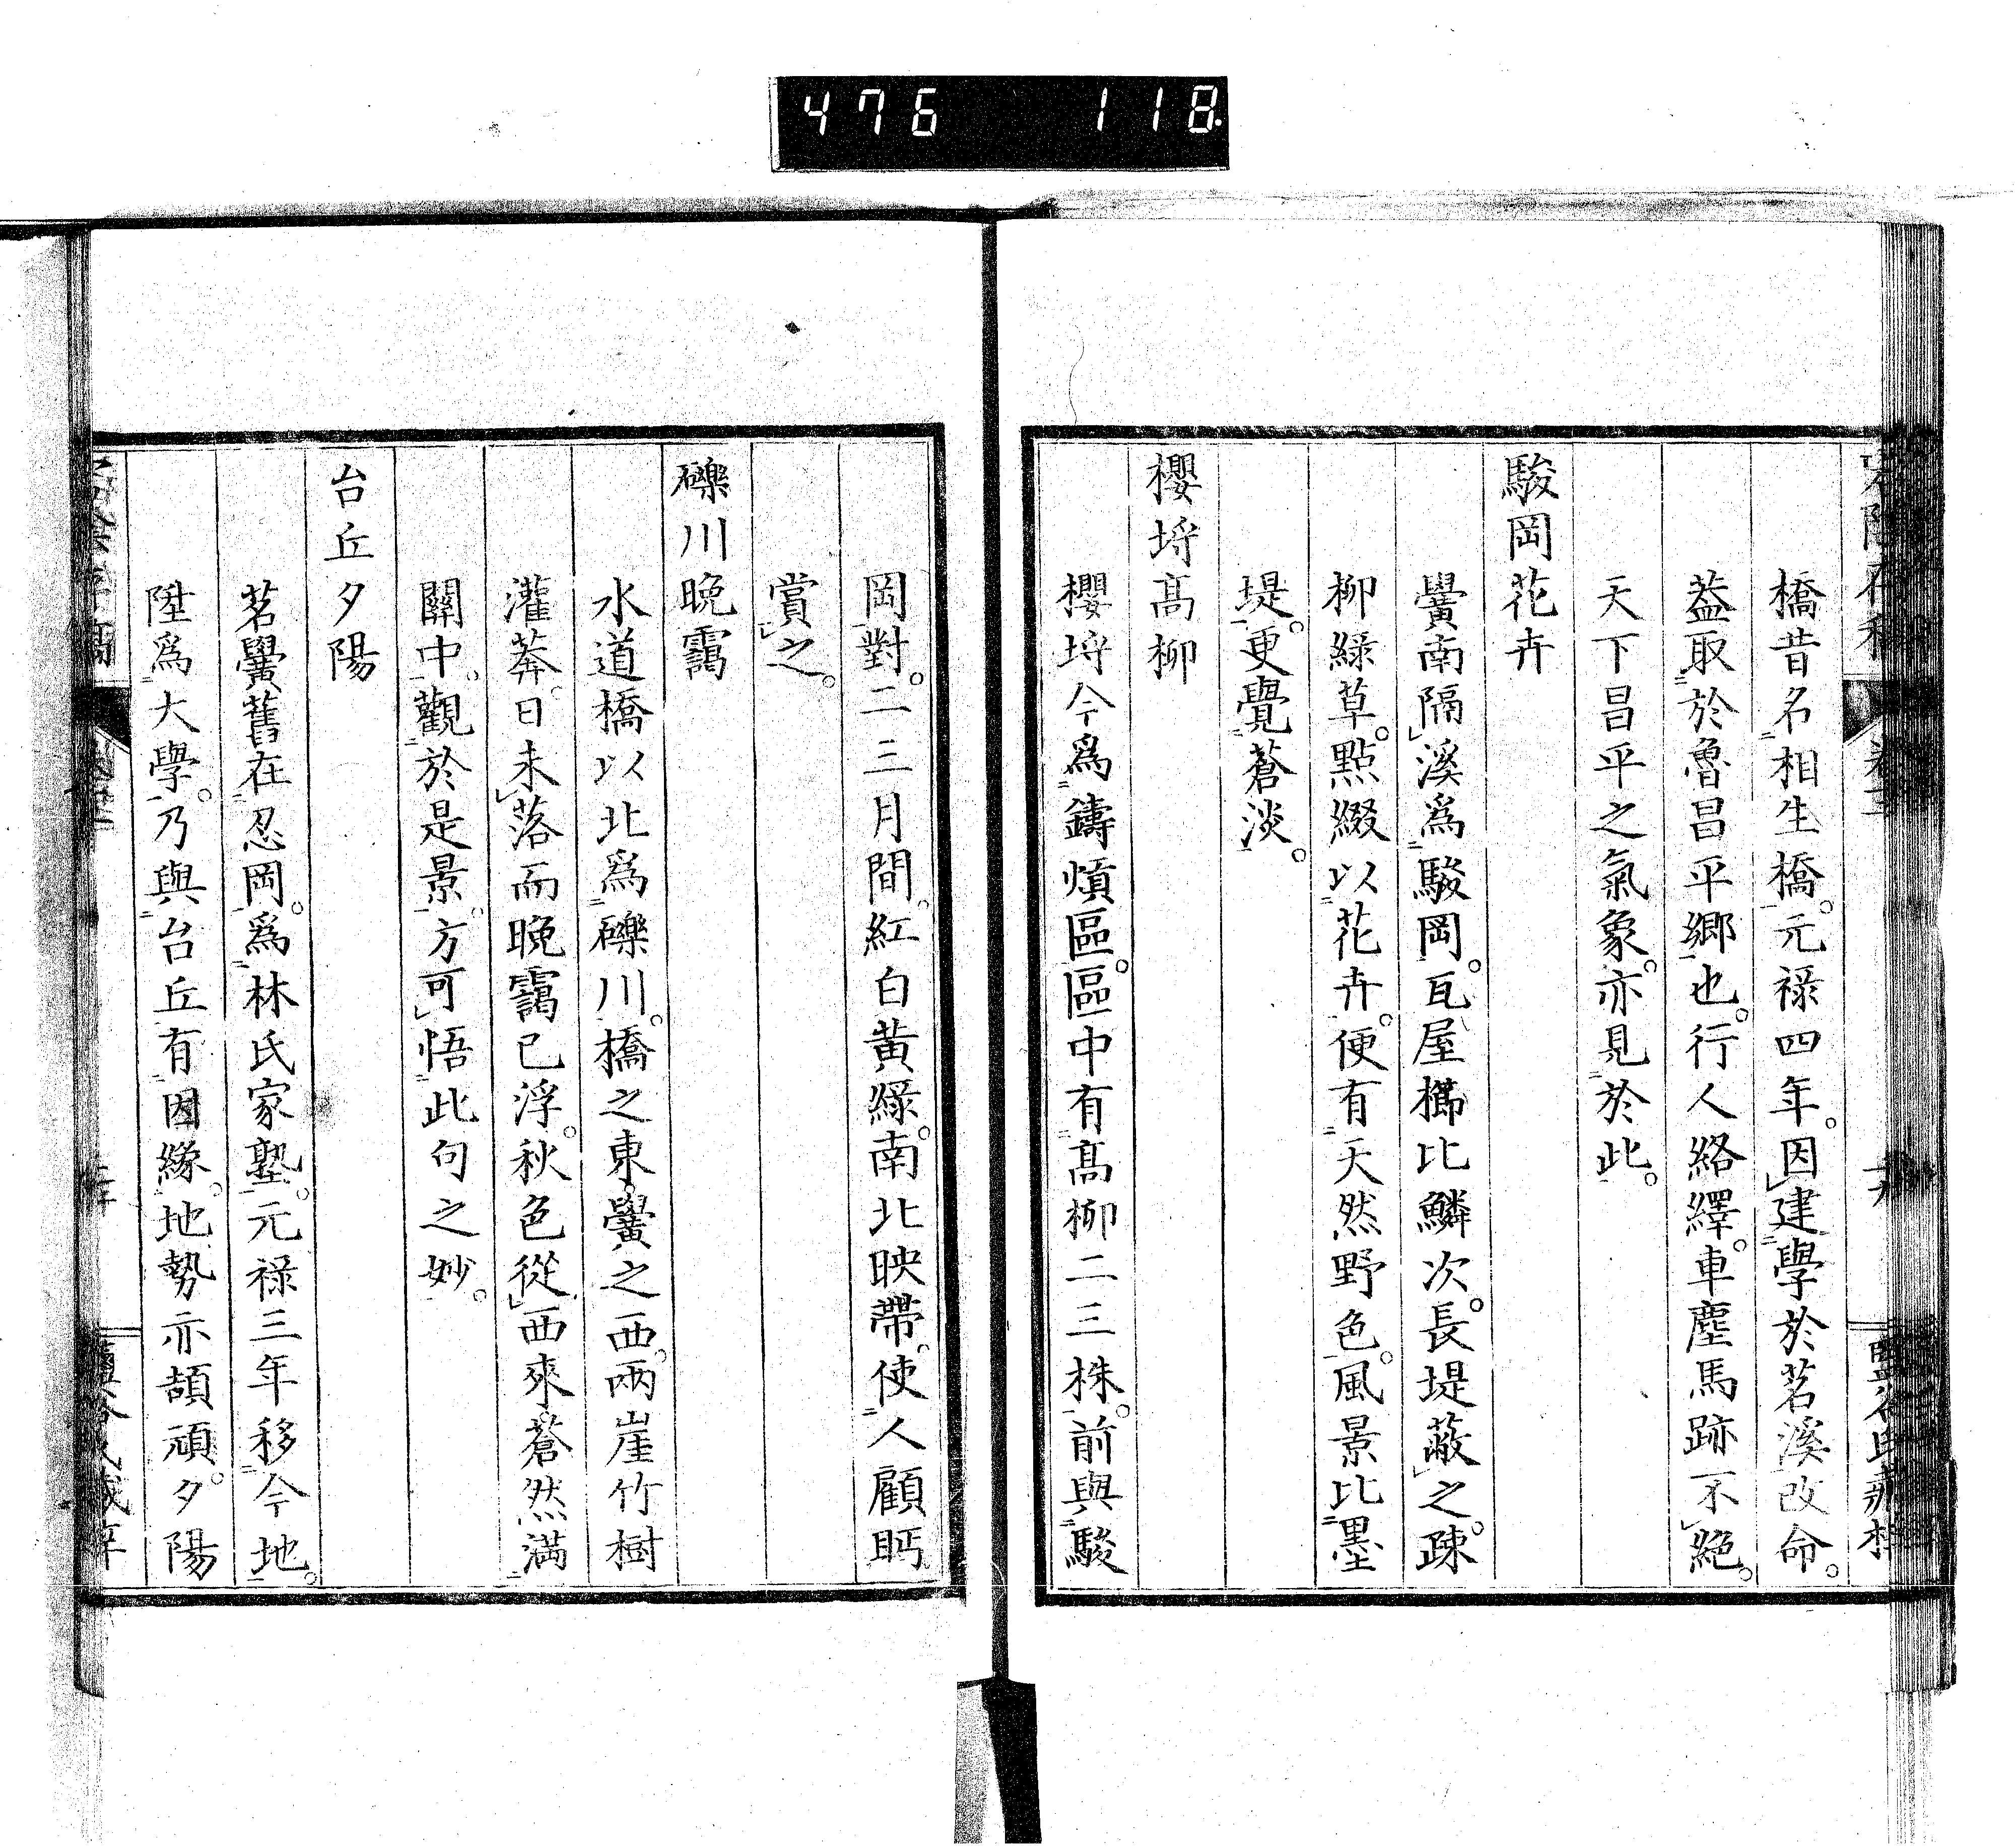 476 118
橋昔名相生橋。元禄四年。因建學於茗溪改命。
葢取於魯昌平鄉也。行人絡繹。車塵馬跡不絕。
天下昌平之氣象。亦見於此。
駿岡花卉
黌南隔溪爲駿岡。瓦屋櫛比鱗次。長堤蔽之。疎
柳綠草。點綴以花卉。便有天然野色。風景比墨
堤。更覺蒼淡。
櫻埒髙柳
櫻埒今爲鑄熕區。區中有髙柳二三株。前與駿
岡對。二三月間。紅白黃綠。南北映帶。使人顧眄
賞之。
礫川晩靄
水道橋以北爲礫川。橋之東。黌之西。兩崖竹樹
灌莽。日未落而晩靄已浮。秋色從西來。蒼然滿
關中。觀於是景。方可悟此句之妙。
台丘夕陽
茗黌舊在忍岡。爲林氏家塾。元禄三年移今地。
陞爲大學。乃與台丘有因緣。地勢亦頡頏。夕陽